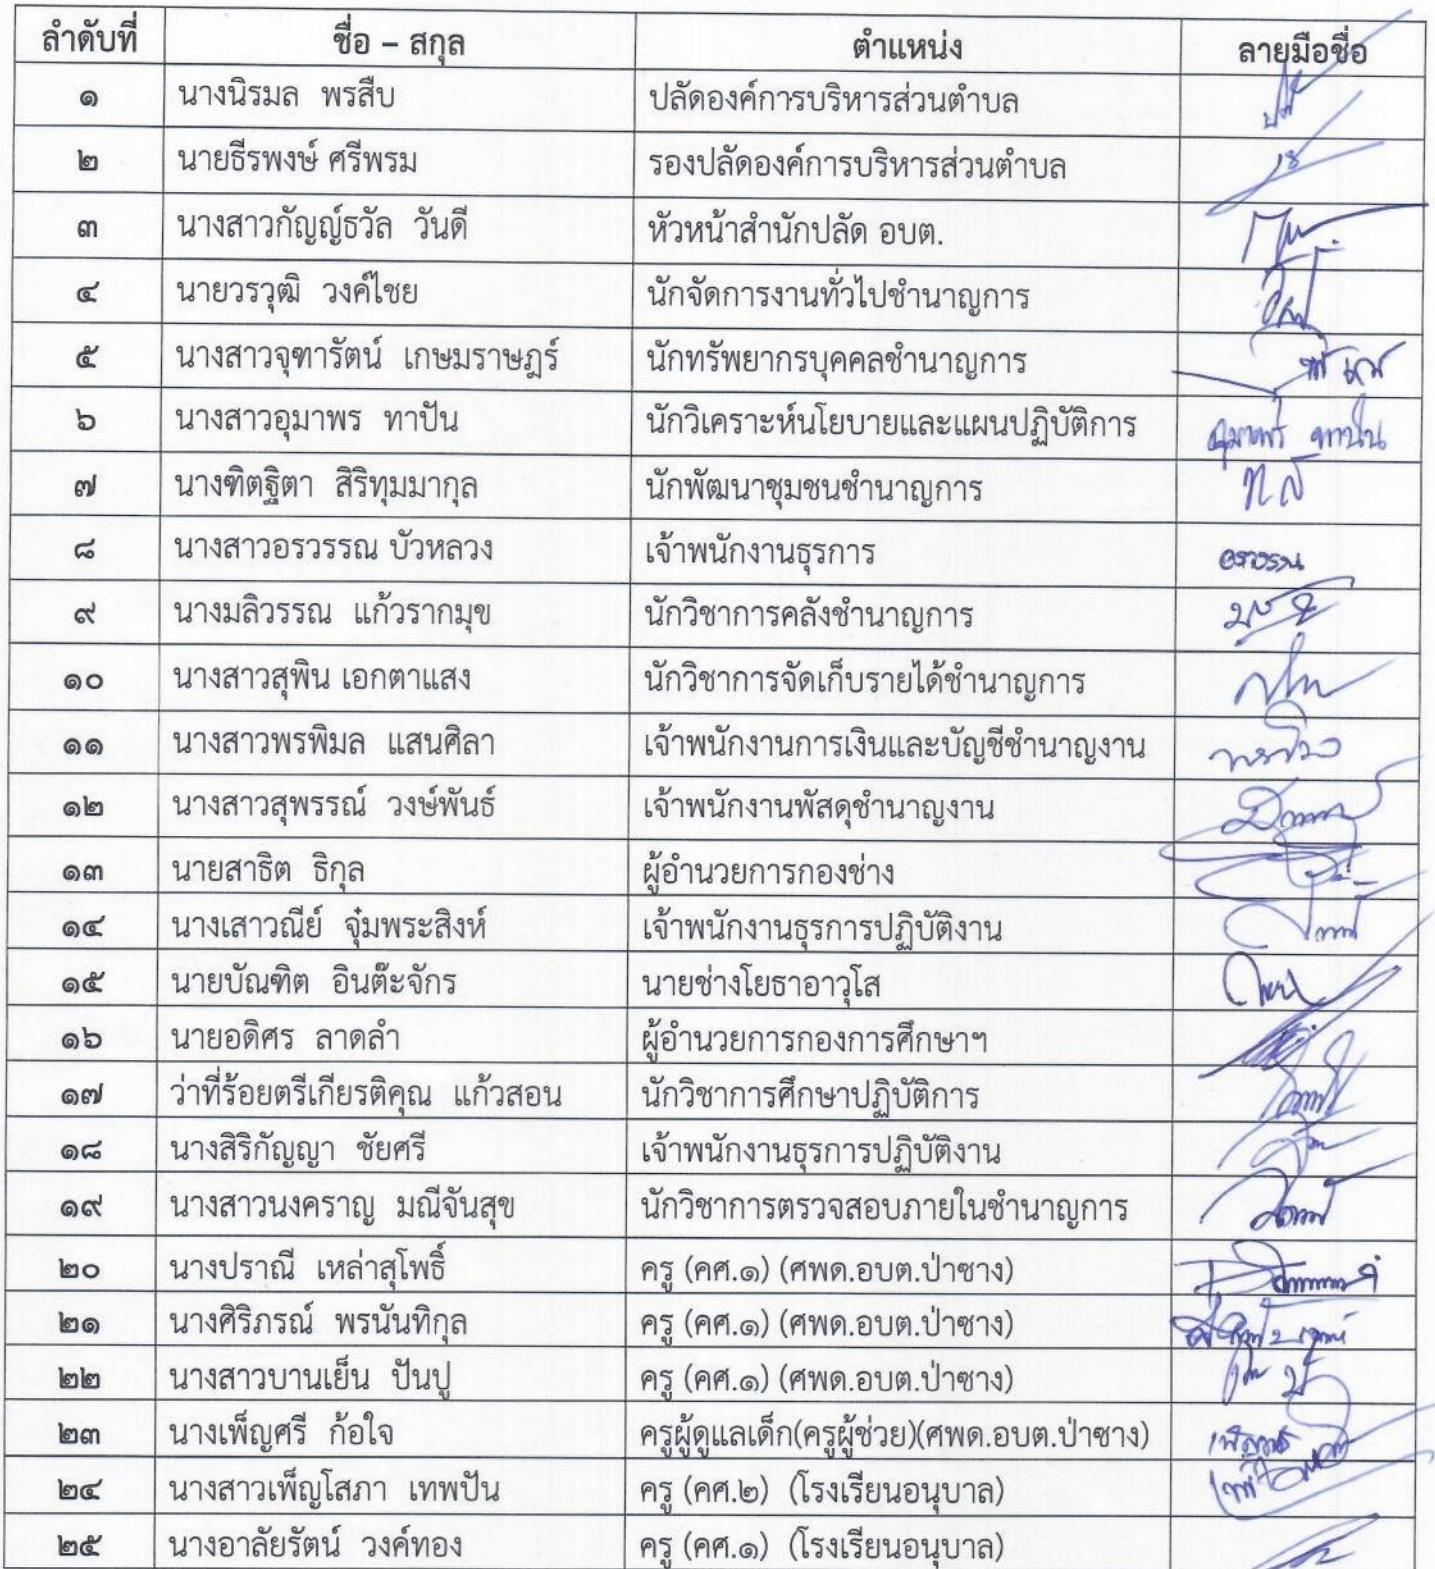 ลำดับที่ ชื่อ – สกุล ตำแหน่ง ลายมือชื่อ
๑ นางนิรมล พรสืบ ปลัดองค์การบริหารส่วนตำบล
๒ นายธีรพงษ์ ศรีพรม รองปลัดองค์การบริหารส่วนตำบล
๓ นางสาวกัญญ์ธวัล วันดี หัวหน้าสำนักปลัด อบต.
๔ นายวรวุฒิ วงค์ไชย นักจัดการงานทั่วไปชำนาญการ
๕ นางสาวจุฑารัตน์ เกษมราษฎร์ นักทรัพยากรบุคคลชำนาญการ
๖ นางสาวอุมาพร ทาปัน นักวิเคราะห์นโยบายและแผนปฏิบัติการ อุมาพร ทาปัน
๗ นางฑิตฐิตา สิริทุมมากุล นักพัฒนาชุมชนชำนาญการ
๘ นางสาวอรวรรณ บัวหลวง เจ้าพนักงานธุรการ อรวรรณ
๙ นางมลิวรรณ แก้วรากมุข นักวิชาการคลังชำนาญการ
๑๐ นางสาวสุพิน เอกตาแสง นักวิชาการจัดเก็บรายได้ชำนาญการ
๑๑ นางสาวพรพิมล แสนศิลา เจ้าพนักงานการเงินและบัญชีชำนาญงาน
๑๒ นางสาวสุพรรณ์ วงษ์พันธ์ เจ้าพนักงานพัสดุชำนาญงาน
๑๓ นายสาธิต ธิกุล ผู้อำนวยการกองช่าง
๑๔ นางเสาวณีย์ จุ๋มพระสิงห์ เจ้าพนักงานธุรการปฏิบัติงาน
๑๕ นายบัณฑิต อินต๊ะจักร นายช่างโยธาอาวุโส
๑๖ นายอดิศร ลาดลำ ผู้อำนวยการกองการศึกษาฯ
๑๗ ว่าที่ร้อยตรีเกียรติคุณ แก้วสอน นักวิชาการศึกษาปฏิบัติการ
๑๘ นางสิริกัญญา ชัยศรี เจ้าพนักงานธุรการปฏิบัติงาน
๑๙ นางสาวนงคราญ มณีจันสุข นักวิชาการตรวจสอบภายในชำนาญการ
๒๐ นางปราณี เหล่าสุโพธิ์ ครู (คศ.๑) (ศพด.อบต.ป่าซาง)
๒๑ นางศิริภรณ์ พรนันทิกุล ครู (คศ.๑) (ศพด.อบต.ป่าซาง)
๒๒ นางสาวบานเย็น ปันปู ครู (คศ.๑) (ศพด.อบต.ป่าซาง)
๒๓ นางเพ็ญศรี ก้อใจ ครูผู้ดูแลเด็ก(ครูผู้ช่วย)(ศพด.อบต.ป่าซาง)
๒๔ นางสาวเพ็ญโสภา เทพปัน ครู (คศ.๒) (โรงเรียนอนุบาล)
๒๕ นางอาลัยรัตน์ วงค์ทอง ครู (คศ.๑) (โรงเรียนอนุบาล)